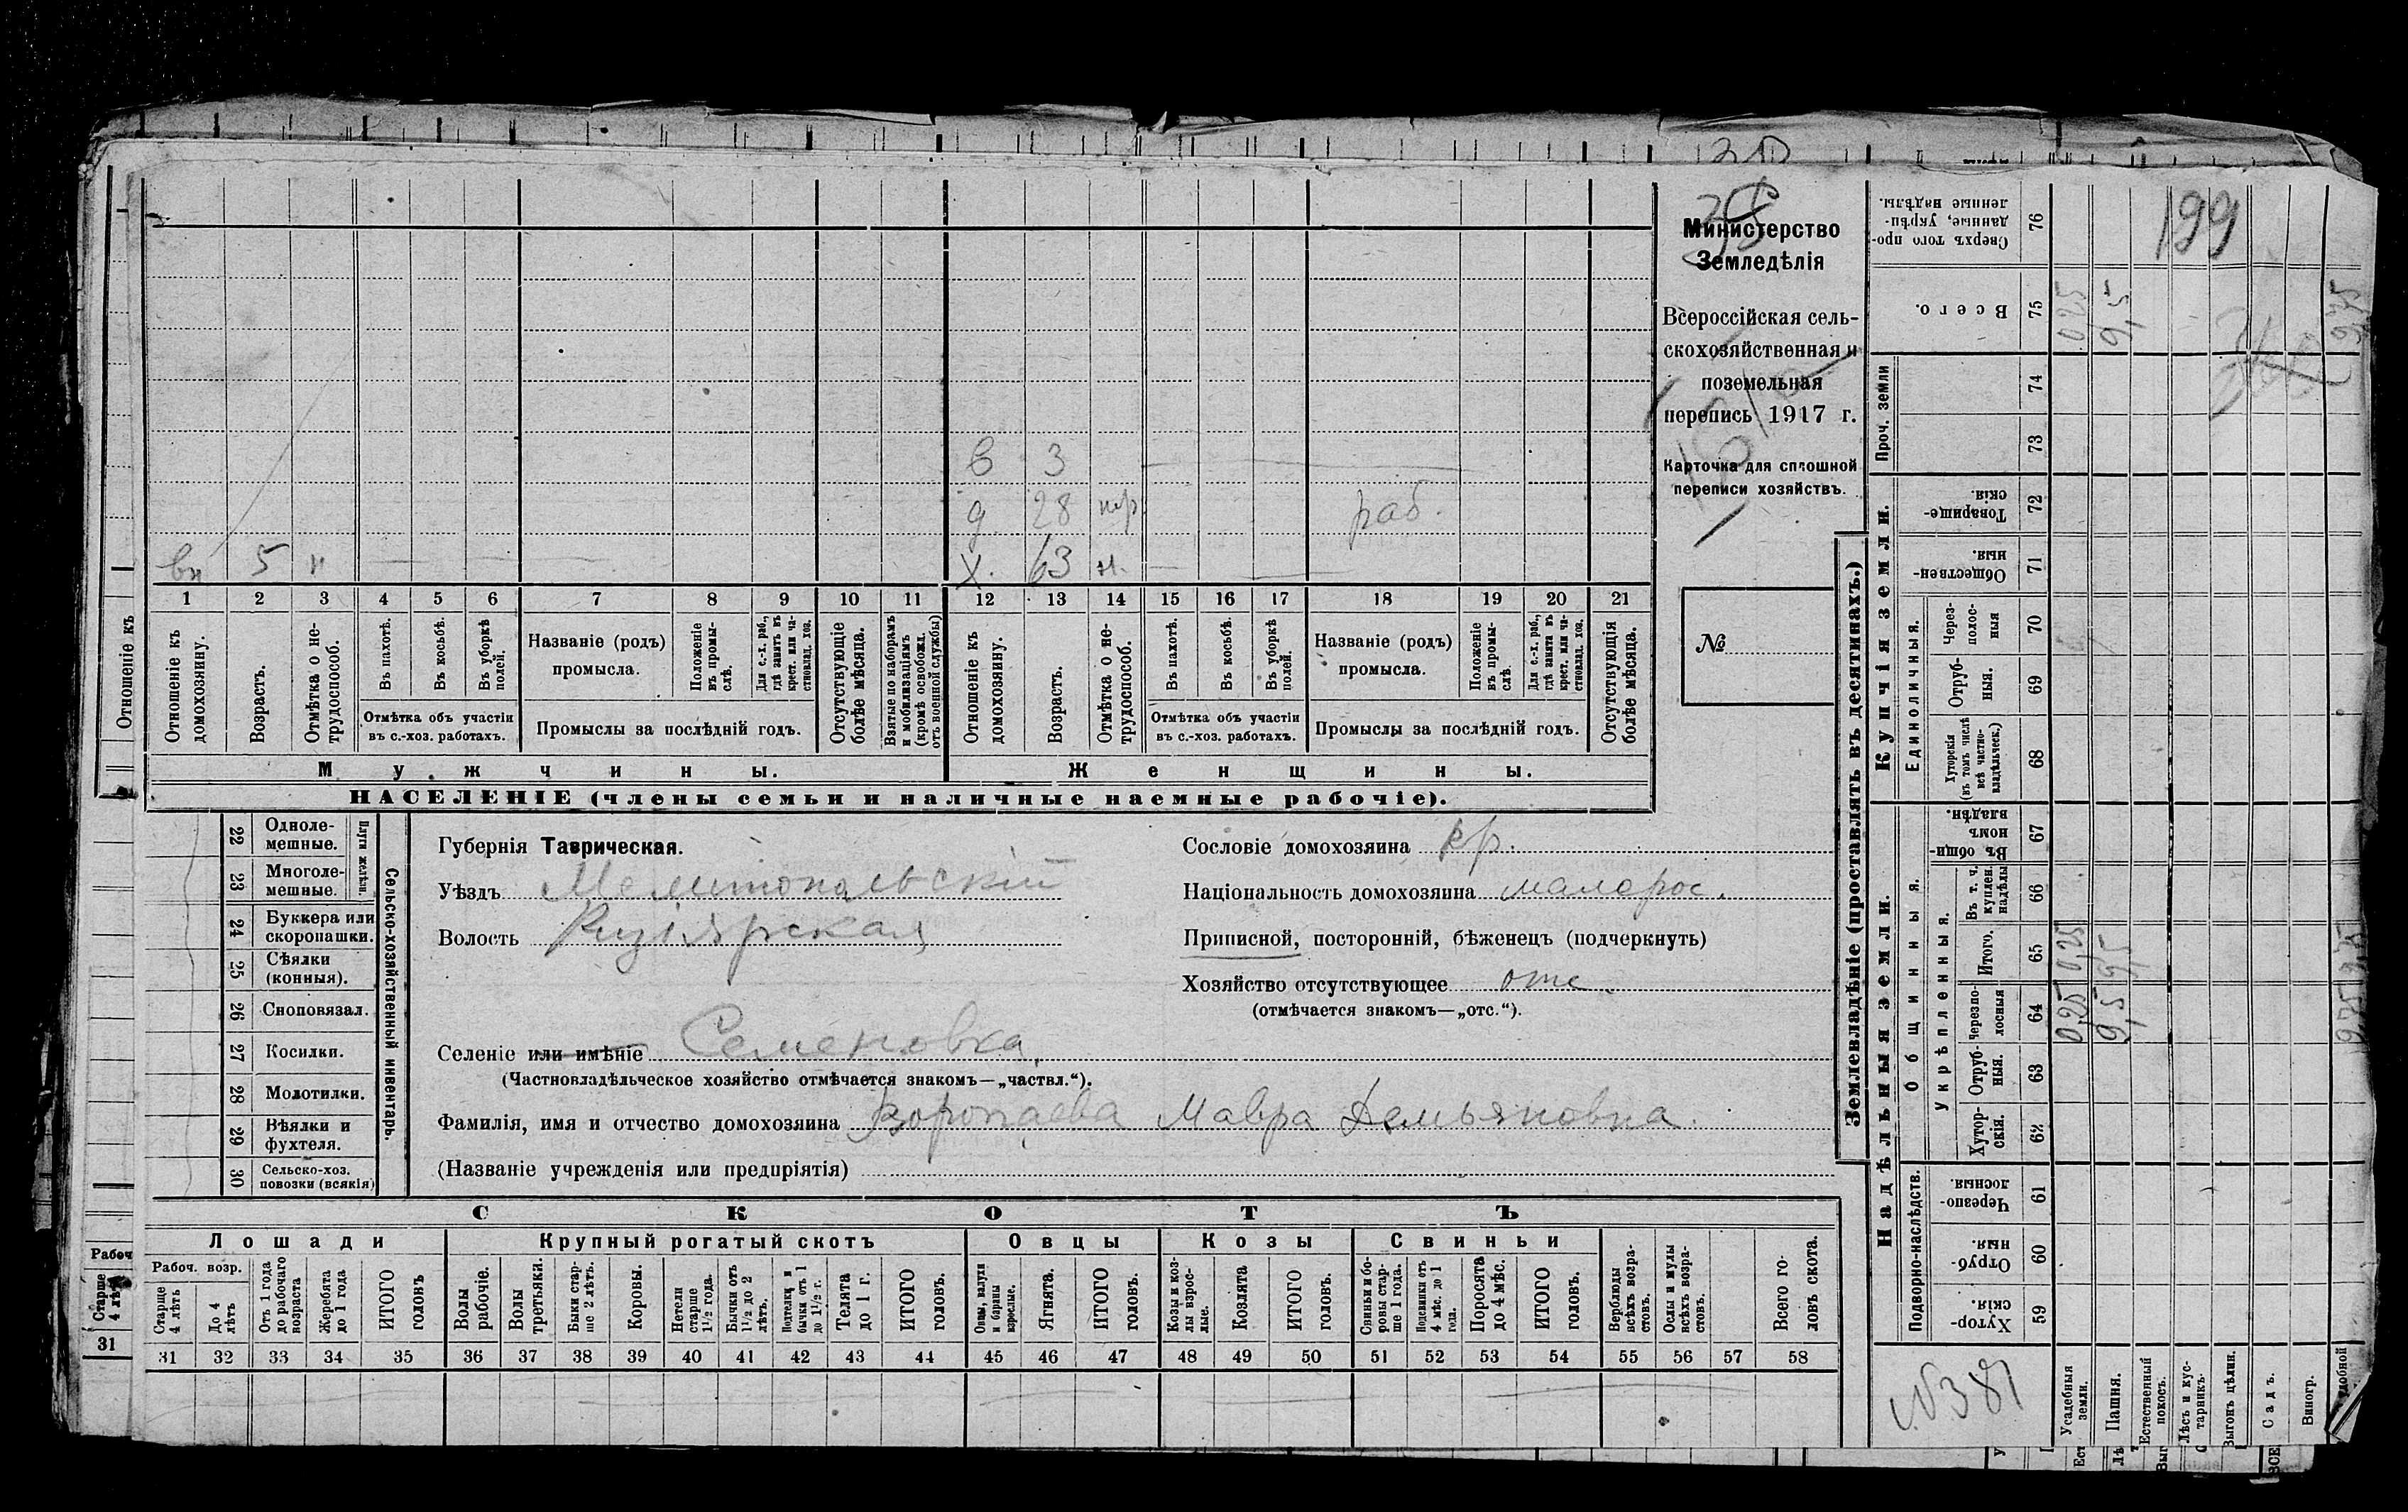 199
Министерство
Земледѣлія
Всероссійская сель-
скохозяйственная и
поземельная
перепись 1917 г.
Карточка для сплошной
переписи хозяйствъ.
№
в 3
д 28 раб.
вн 5 н х. 63 н.
1 2 3 4 5 6 7 8 9 10 11 12 13 14 15 16 17 18 19 20 21
Отношеніе къ
Отношеніе къ домохозяину.
Возрастъ.
Отмѣтка о не-трудоспособ.
Въ пахотѣ.
Въ косьбѣ.
Въ уборкѣ полей.
Отмѣтка объ участіи
въ с.-хоз. работахъ.
Названіе (родъ)
промысла.
Положеніе въ промы-слѣ.
Для с.-х. раб., гдѣ занятъ въ крест. или ча-стновлад. хоз.
Промыслы за послѣдній годъ.
Отсутствующіе болѣе мѣсяца.
Взятые по наборамъ и мобилизаціямъ (кромѣ освобожд. отъ военной службы)
Отношеніе къ домохозяину.
Возрастъ.
Отмѣтка о не-трудоспособ.
Въ пахотѣ.
Въ косьбѣ.
Въ уборкѣ полей.
Отмѣтка объ участіи
въ с.-хоз. работахъ.
Названіе (родъ)
промысла.
Положеніе въ промы-слѣ.
Для с.-х. раб., гдѣ занята въ крест. или ча-стновлад. хоз.
Промыслы за послѣдній годъ.
Отсутствующія болѣе мѣсяца.
Мужчины. Женщины.
НАСЕЛЕНІЕ (члены семьи и наличные наемные рабочіе).
22 Одноле-мешные.
23 Многоле-мешные.
Плуги желѣзн.
24 Буккера или скоропашки.
25 Сѣялки (конныя).
26 Сноповязал.
27 Косилки.
28 Молотилки.
29 Вѣялки и фухтеля.
30 Сельско-хоз. повозки (всякія)
Сельско-хозяйственный инвентарь.
Губернія Таврическая.
Уѣздъ Мелитопольскій
Волость Кизіярская
Селеніе или имѣніе Семеновка
(Частновладѣльческое хозяйство отмѣчается знакомъ—„частвл.“).
Фамилія, имя и отчество домохозяина Воропаева Мавра Демьяновна.
(Названіе учрежденія или предпріятія)
Сословіе домохозяина кр.
Національность домохозяина малорос.
Приписной, посторонній, бѣженецъ (подчеркнуть)
Хозяйство отсутствующее отс.
(отмѣчается знакомъ—„отс.“).
СКОТЪ
Лошади Крупный рогатый скотъ Овцы Козы Свиньи
Рабоч. возр.
Старше 4 лѣтъ
До 4 лѣтъ
Отъ 1 года до рабочаго возраста
Жеребята до 1 года
ИТОГО головъ
Волы рабочіе.
Волы третьяки.
Быки стар-ше 2 лѣтъ.
Коровы.
Нетели старше 1½ года.
Бычки отъ 1½ до 2 лѣтъ.
Подтелки и бычки отъ 1 до 1½ г.
Телята до 1 г.
ИТОГО головъ.
Овцы, валухи и бараны взрослые.
Ягнята.
ИТОГО головъ.
Козы и коз-лы взрос-лые.
Козлята
ИТОГО головъ.
Свиньи и бо-ровы стар-ше 1 года.
Подсвинки отъ 4 мѣс. до 1 года.
Поросята до 4 мѣс.
ИТОГО головъ.
Верблюды всѣхъ возра-стовъ.
Ослы и мулы всѣхъ возра-стовъ.
Всего го-ловъ скота.
31 32 33 34 35 36 37 38 39 40 41 42 43 44 45 46 47 48 49 50 51 52 53 54 55 56 57 58
Рабоч
Старше 4 лѣтъ
31
Землевладѣніе (проставлять въ десятинахъ.)
Купчія земли.
Надѣльныя земли.
Сверхъ того про-данные, укрѣп-ленные надѣлы. 76
Всего. 75 0 25 9,5 9,75
Проч. земли 74
73
Товарище-скія. 72
Обществен-ныя. 71
Единоличныя.
Через-полос-ныя 70
Отруб-ныя. 69
Хуторскія (въ томъ числѣ всѣ частно-владѣльческ.) 68
Общинныя.
Въ общи-номъ владѣн. 67
Укрѣпленныя.
Въ т. ч. куплен. надѣлы 66
Итого. 65 0,25 9,5 9,75
Черезпо-лосныя 64 0,25 9,5 9,75
Отруб-ныя. 63
Хутор-скія. 62
Подворно-наслѣдств.
Черезпо-лосныя. 61
Отруб-ныя. 60
Хутор-скія. 59
№381
Усадебныя земли.
Пашня.
Естественный покосъ.
Лѣсъ и кус-тарникъ.
Выгонъ цѣлин.
Садъ.
Виногр.
удобной